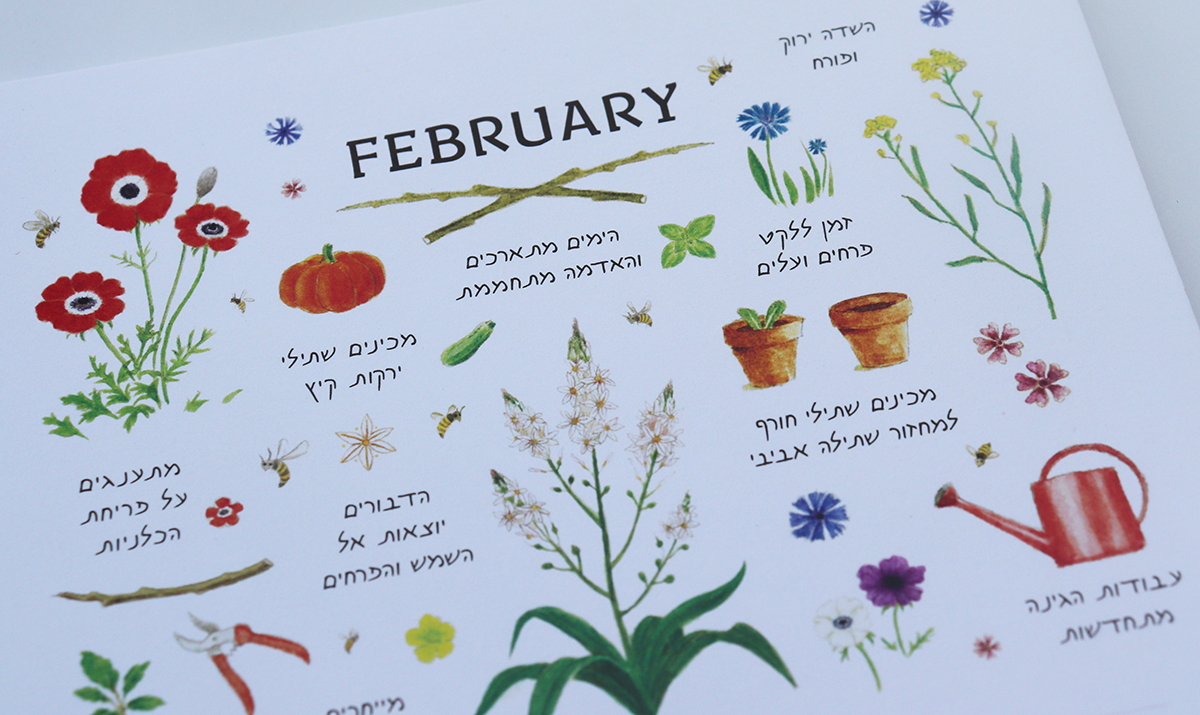 השדה ירוק
ופורח
FEBRUARY
הימים מתארכים
והאדמה מתחממת
זמן ללקט
פרחים ועלים
מכינים שתילי
ירקות קיץ
מכינים שתילי חורף
למחזור שתילה אביבי
מתענגים
על פריחת
הכלניות
הדבורים
יוצאות אל
השמש והפרחים
עבודות הגינה
מתחדשות